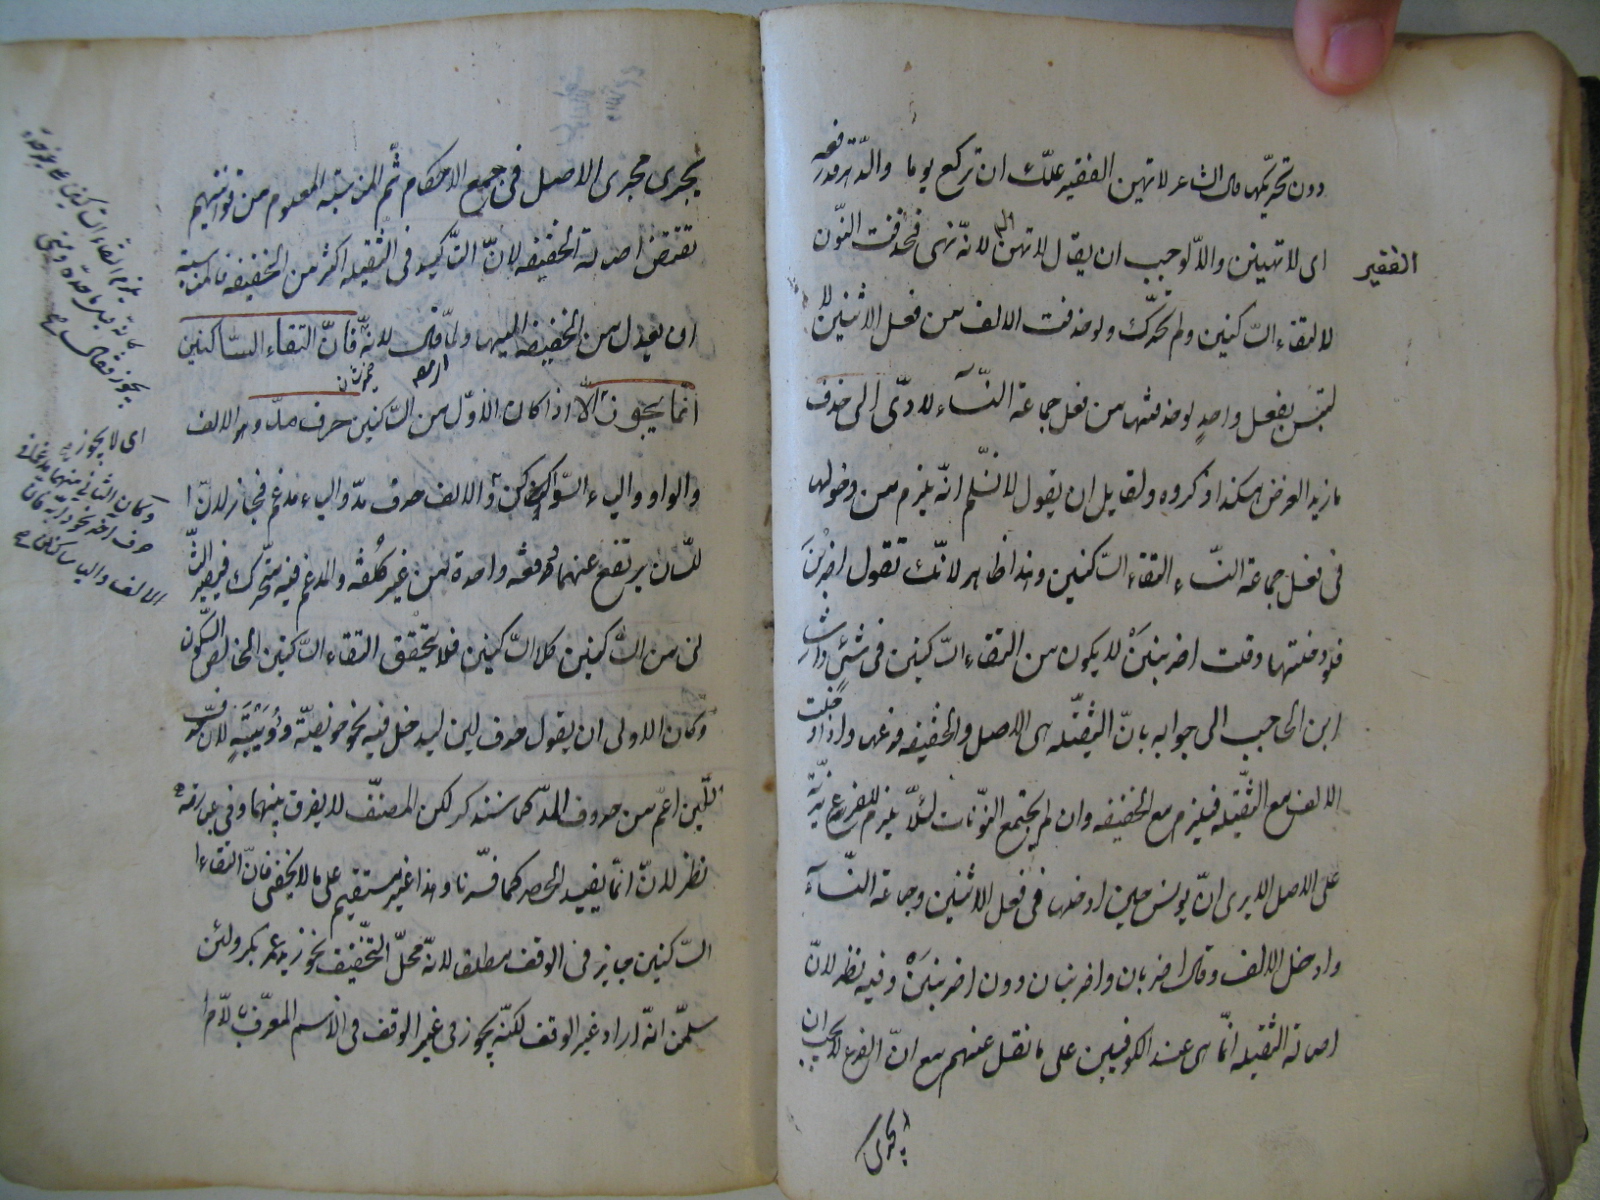 دون تحريكها قال الشاعر لا تهين الفقير علّك ان تركع يوما والدّهر قد رفعه
اى لا تهينن والّا لوجب ان يقال لا تهن لانّه نهى فحذفت النّون
الفقير
لالتقاء السّاكنين ولم تحرّك ولو حذفت الالف من فعل الاثنين لا
لتبس بفعل واحدٍ ولو حذفتها من فعل جماعة النّسآء لادّى الى حذف
ما زيد لغرض هكذا ذكروه ولقايل ان يقول لا نسلّم انّه يلزم من دخولها
فى فعل جماعة النّساء التقاء السّاكنين وهذا ظاهر لانّك تقول اضربْنَ
فلو ادخلتها وقلت اضربننَْ لا يكون من التقاء السّاكنين فى شئ واشار
ابن الحاجب الى جوابه بانّ الثّقيلة هى الاصل والخفيفة فرعها واذا ادخلت
الالف مع الثّقيلة فيلزم مع الخفيفة وان لم يجتمع النّونات لئلّا يلزم للفرع مزيّة
على الاصل الا يرى انّ يونس حين ادخلها فى فعل الاثنين وجماعة النّسآء
وادخل الالف وقال اضربان واضربنان دون اضربننَْ وفيه نظر لانّ
اصالة الثّقيلة انّما هى عند الكوفيين على ما نقل عنهم مع انّ الفرع لا يجب ان
يجرى
يجرى مجرى الاصل فى جميع الاحكام ثمّ المناسبة المعلوم من قوانينهم
تقتضى اصالة الخفيفة لانّ التّاكيد فى الثّقيلة اكثر من الخفيفة فالمناسبة
ان يعدل من الخفيفة اليها ولمّا قال لانّه فانّ التقاء السّاكنين
انّما يجوز الّا اذا كان الاوّل من السّاكنين حرف مدّ وهو الالف
والواو والياء السّواكن والالف حرف مدّ والياء مدغم فجاز لانّ ا
للّسان يرتفع عنهما دفعة واحدة من غير كلفة والمدغم فيه متحرّك فيصير الثّا
نى من السّاكنين كلا السّاكنين فلا يتحقّق التقاء السّاكنين الخالص السّكون
وكان الاولى ان يقول حرف لين ليدخل فيه نحو خويصّة ودويبّةٍ لانّ حرف
اللّين اعمّ من حروف المدّ كما سنذكر لكن المصنّف لا يفرق بينهما وفى عبارته
نظر لانّ انّما يفيد الحصر كما فسّرنا وهذا غير مستقيم على ما لا يخفى فانّ التقاء ا
السّاكنين جايز فى الوقف مطلقا لانّه محلّ التّخفيف نحو زيد عمر بكر ولئن
سلّمن انّه اراد غير الوقف لكنّه يجوز فى غير الوقف فى الاسم المعرّف بلام ا
اى لا يجوز
وكان الثانى منهما مدغما فى
حرف اخر نحو دابّة فان
الالف والياء ساكنان